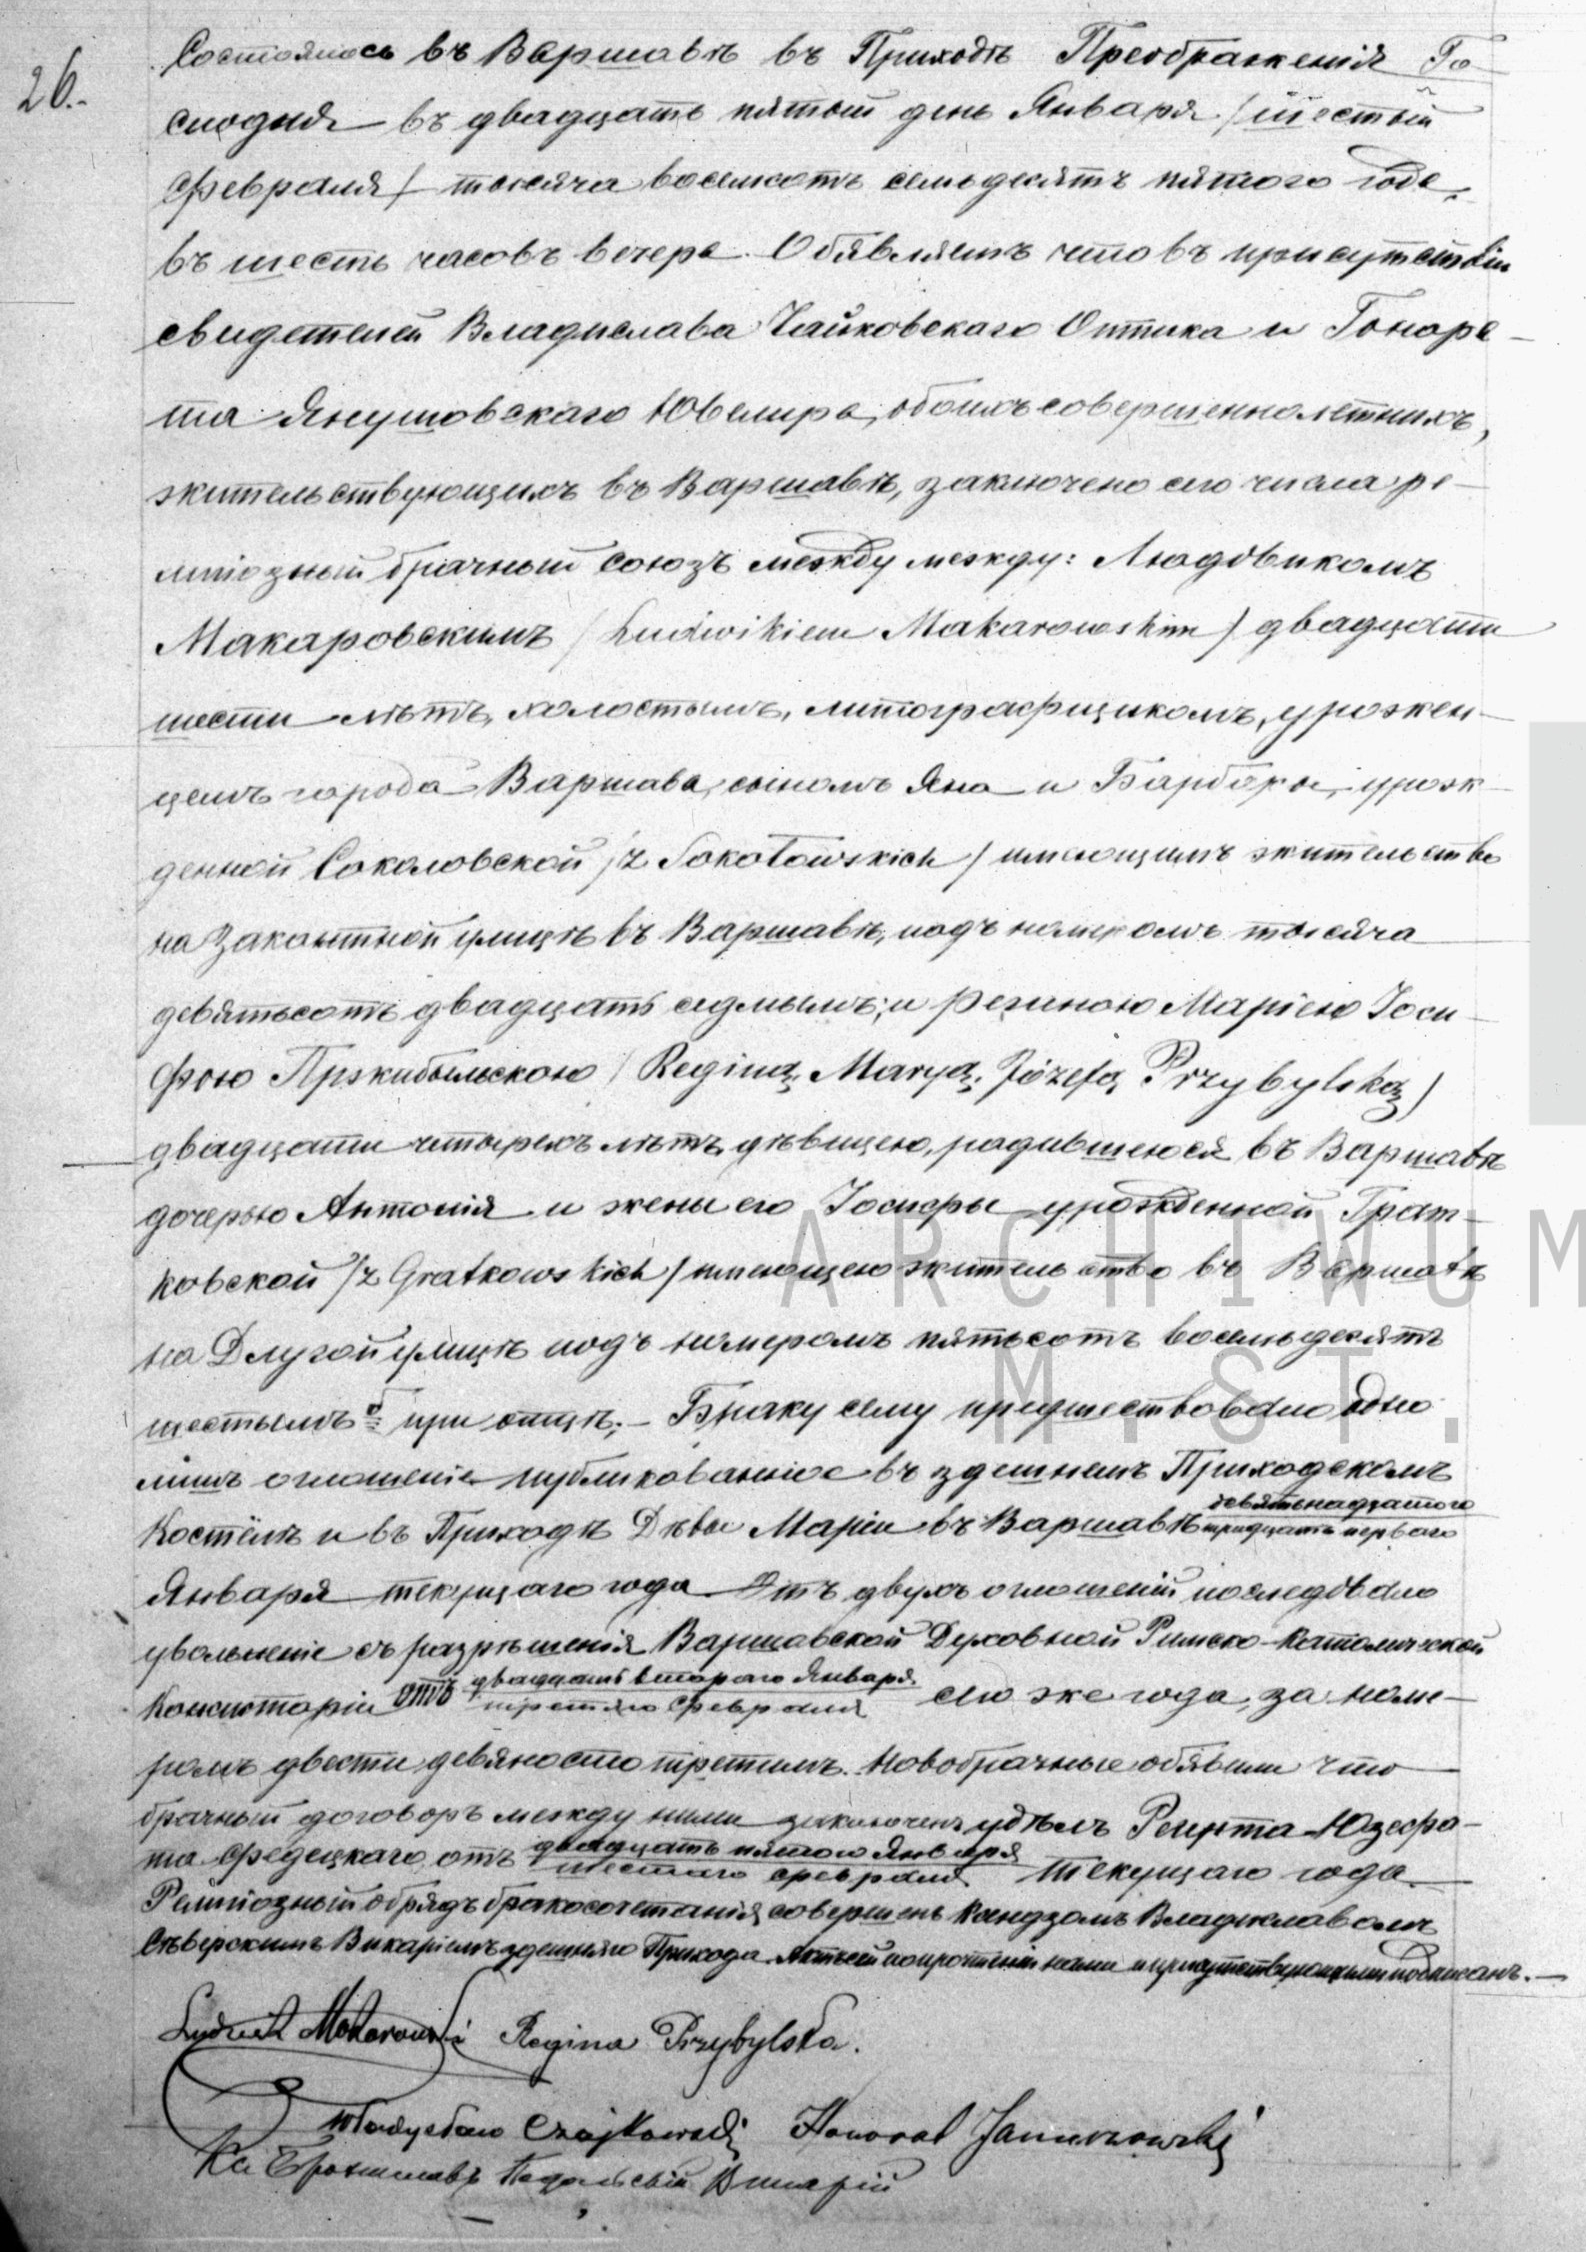 26.
Состоялось въ Варшавѣ въ Приходѣ Преображенія Го-
сподня въ двадцать пятый день Января /шестый
Февраля/ тысяча восемьсотъ семьдесятъ пятого года,
въ шесть часовъ вечера. Объявляемъ что въ присутствіи
свидетелей Владислава Чайковскаго Оптика и Гонора-
та Янушовскаго Ювелира, обоихъ совершеннолѣтнихъ,
жительствующихъ въ Варшавѣ, заключено сего числа ре-
лигіозный брачный союзъ между между: Людовикомъ
Макаровскимъ /Ludwikiem Makarowskim/ двадцати
шести лѣтъ, холостымъ, литографщикомъ, урожен-
цемъ города Варшава, сыномъ Яна и Барбары, урож-
денной Соколовской /z Sokołowskich/ имеющимъ жительство
на Закоытной улицѣ въ Варшавѣ, подъ номеромъ тысяча
девятьсотъ двадцать седмымъ; и Региною Маріею Іоси-
фою Пржибыльскою /Reginą, Maryą, Józefą Przybylską/
двадцати четырехъ лѣтъ, дѣвицею, родившеюся въ Варшавѣ
дочерью Антонія и жены его Іосифы урожденной Грат-
ковской /z Gratkowskich/ имеющею жительство въ Варшавѣ
на Длугой улицѣ подъ номеромъ пятьсотъ восемьдесятъ
шестымъ б при отцѣ. – Браку сему предшествовало одно
лишъ оглошеніе публикованное въ здешнемъ Приходскомъ
Костёлѣ и въ Приходѣ Дѣвы Маріи въ Варшавѣ девятьнадцатого
тридцать первого
Января текущаго года. Отъ двухъ оглошеній последовало
увольненіе съ разрѣшенія Варшавской Духовной Римско-Католической
Консисторіи отъ двадцать втораго Января
третяго Февраля сего же года, за номе-
ромъ двести девяносто третимъ. Новобрачные объявили что
брачный договоръ между ними заключенъ Регента Юзефа-
та Федецкаго, отъ двадцать пятого Января
шестаго Февраля текущаго года.
Религіозный обрядъ бракосочетанія совершенъ Ксендзомъ Владиславомъ
Сѣверскимъ Викаріемъ здешняго Прихода. Актъ сей по прочтеніи нами и присутствующими подписанъ. –
Ludwik Makarowski Regina Przybylska.
Władysław Czajkowski Honorat Januszowski
Кс. Брониславъ Подольскій Викарій
ARCHIWUM
M. ST.